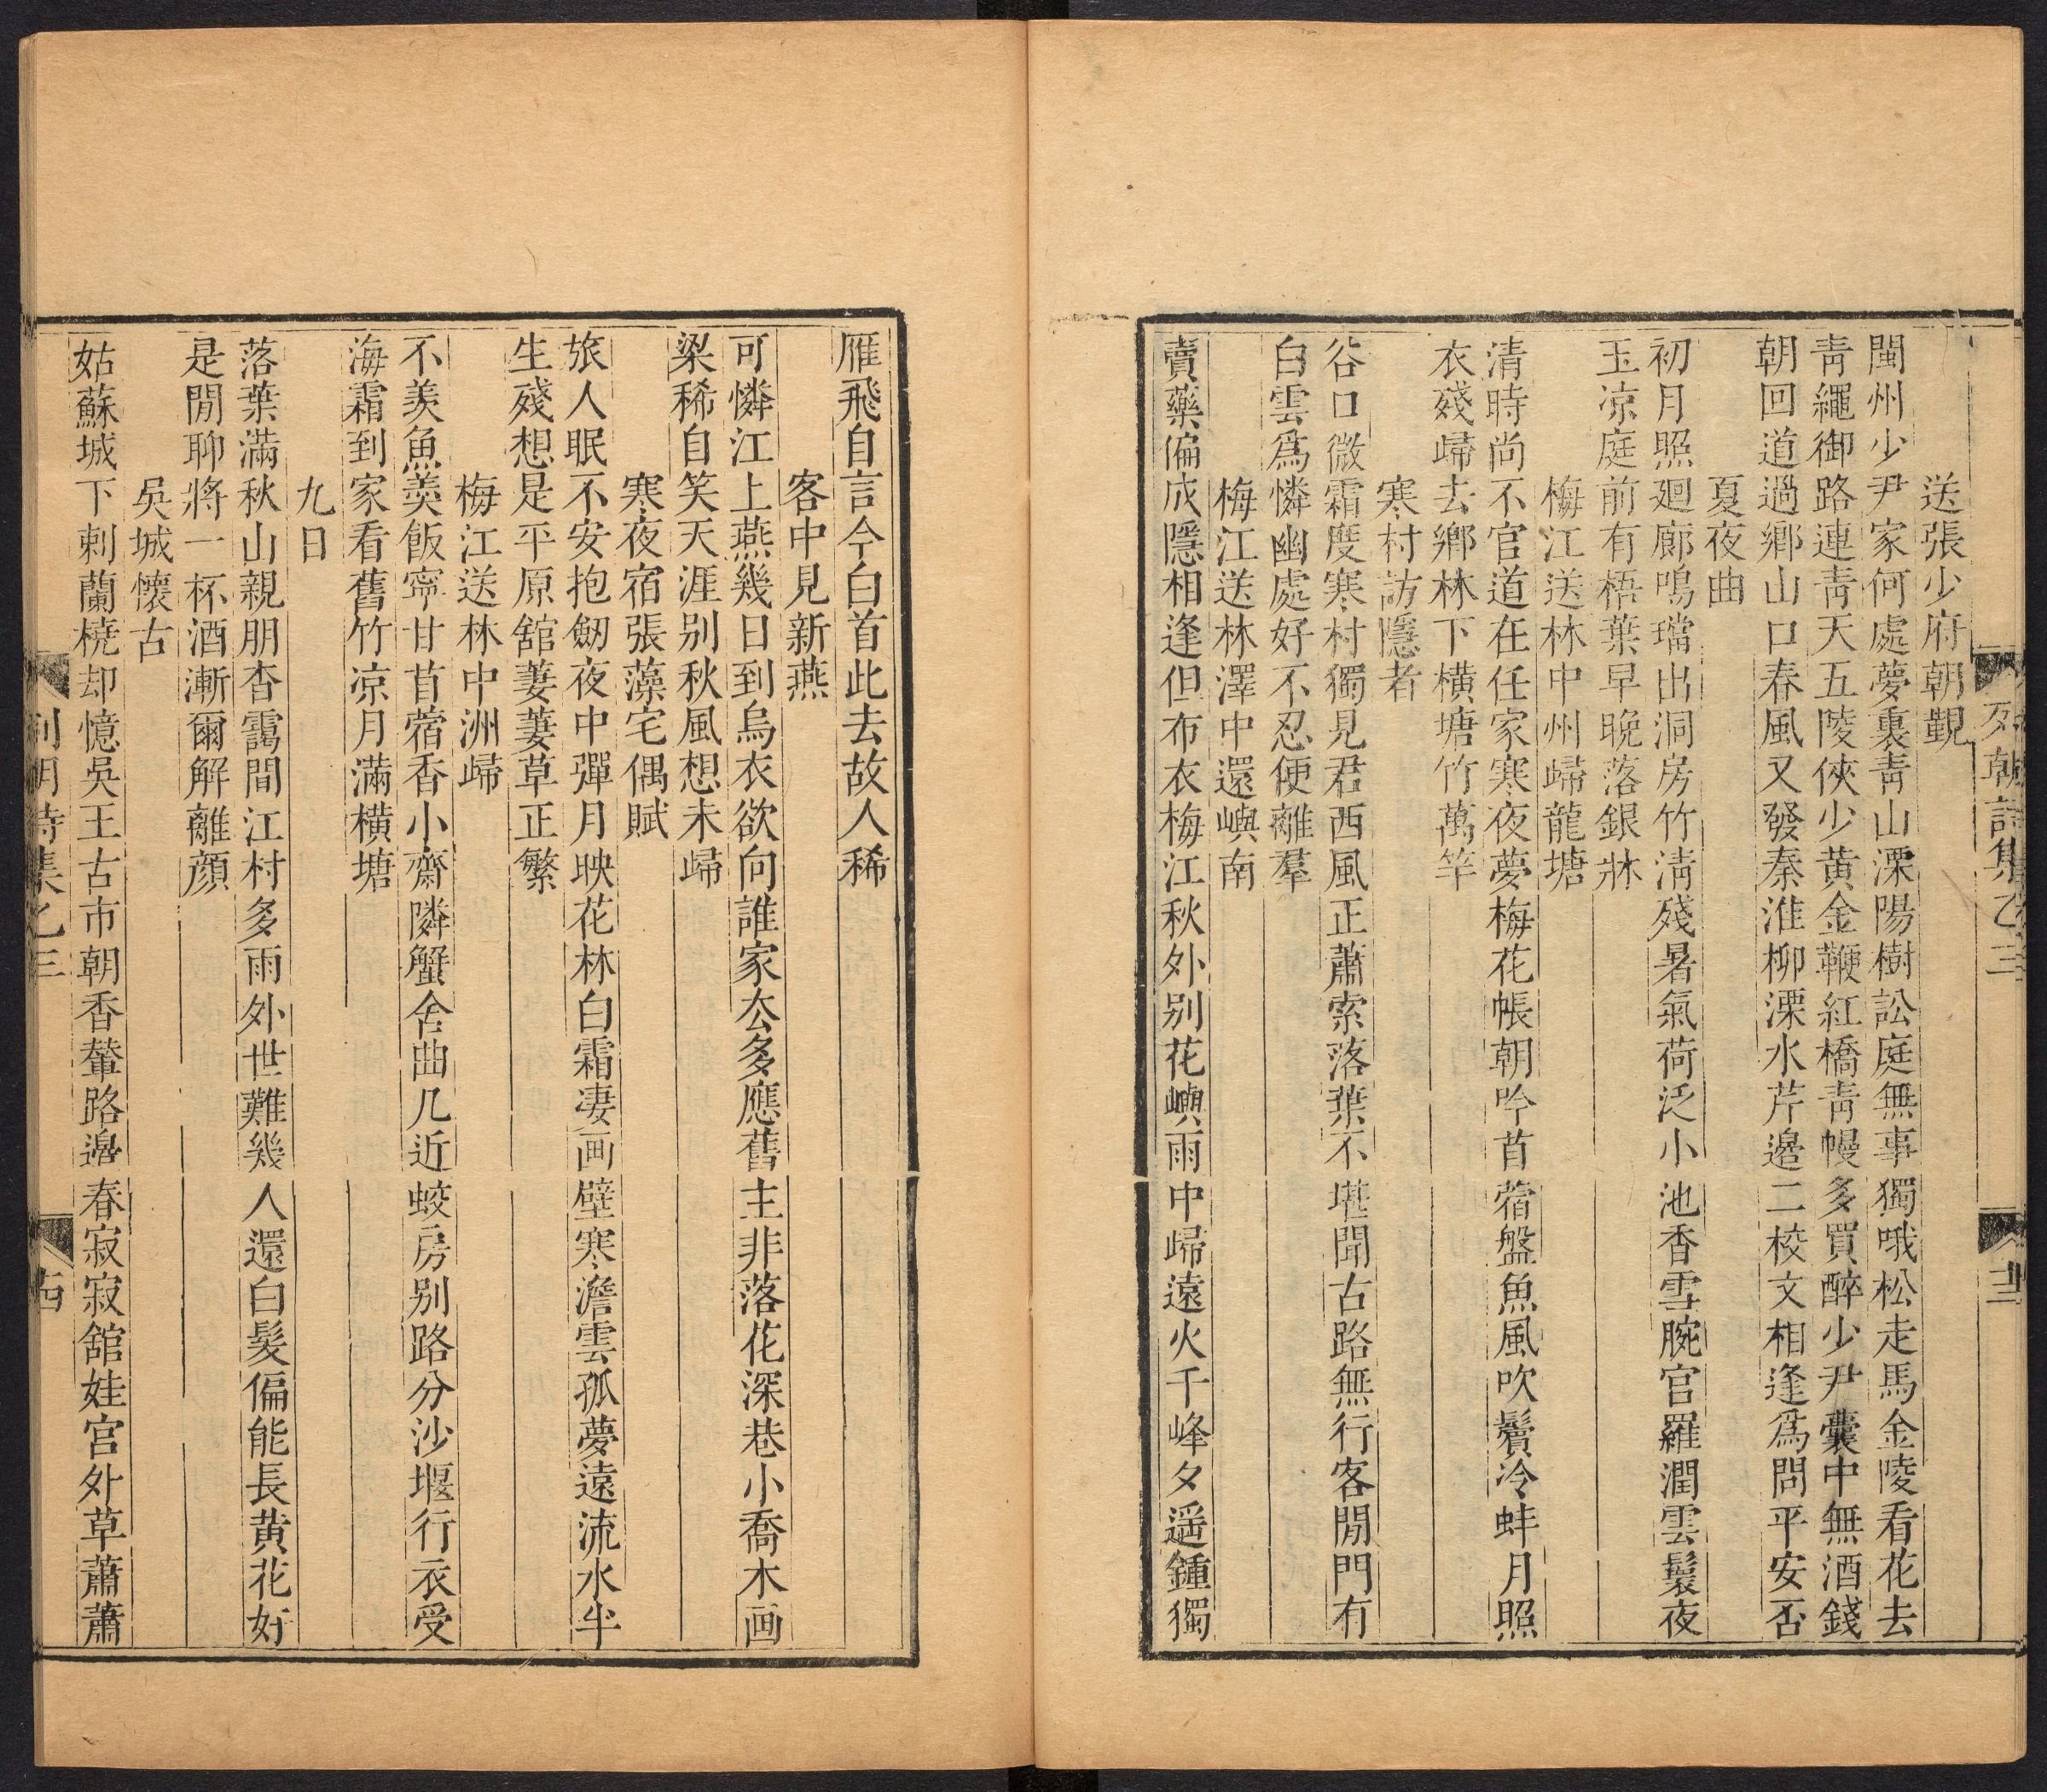 列朝詩集乙三
送張少府朝覲
閩州少尹家何處夢裏靑山溧陽樹訟庭無事獨哦松走馬金陵看花去
靑繩御路連靑天五陵俠少黄金鞭紅橋靑幔多買醉少尹囊中無酒錢
朝回道過鄉山口春風又發秦淮柳溧水芹邉二校文相逢爲問平安否
夏夜曲
初月照廻廊鳴璫出洞房竹淸殘暑氣荷泛小池香雪腕宫羅潤雲鬟夜
玉凉庭前有梧葉早晚落銀牀
梅江送林中州歸龍塘
清時尚不官道在任家寒夜夢梅花帳朝吟苜蓿盤魚風吹鬢冷蚌月照
衣殘歸去鄉林下横塘竹萬竿
寒村訪隱者
谷口微霜度寒村獨見君西風正蕭索落葉不堪聞古路無行客閒門有
白雲爲憐幽處好不忍便離羣
梅江送林澤中還嶼南
賣藥偏成隱相逢但布衣梅江秋外别花嶼雨中歸遠火千峰夕遥鍾獨
雁飛自言今白首此去故人稀
客中見新燕
可憐江上燕幾日到烏衣欲向誰家去多應舊主非落花深巷小喬木画
梁稀自笑天涯别秋風想未歸
寒夜宿張藻宅偶賦
旅人眠不安抱劒夜中彈月映花林白霜凄画壁寒澹雲孤夢遠流水半
生殘想是平原舘萋萋草正繁
梅江送林中洲歸
不羡魚羮飯寧甘苜蓿香小齋隣蟹舍曲几近蛟房别路分沙堰行衣受
海霜到家看舊竹凉月滿横塘
九日
落葉滿秋山親朋杳靄間江村多雨外世難幾人還白髮偏能長黄花好
是閒聊將一杯酒漸爾解離顔
吳城懷古
姑蘇城下刺蘭橈却憶吳王古市朝香輦路邉春寂寂舘娃宫外草蕭蕭
列朝詩集乙三